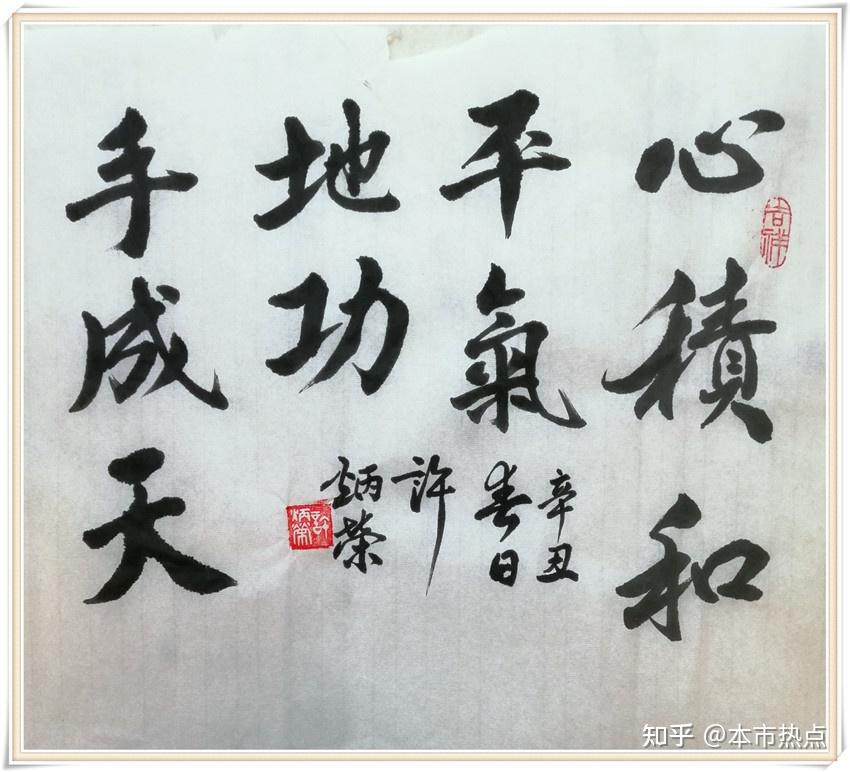 心積和
平氣
手成天
地功
辛丑
春日
許
炳榮
吉祥
許炳榮
知乎 @本市热点